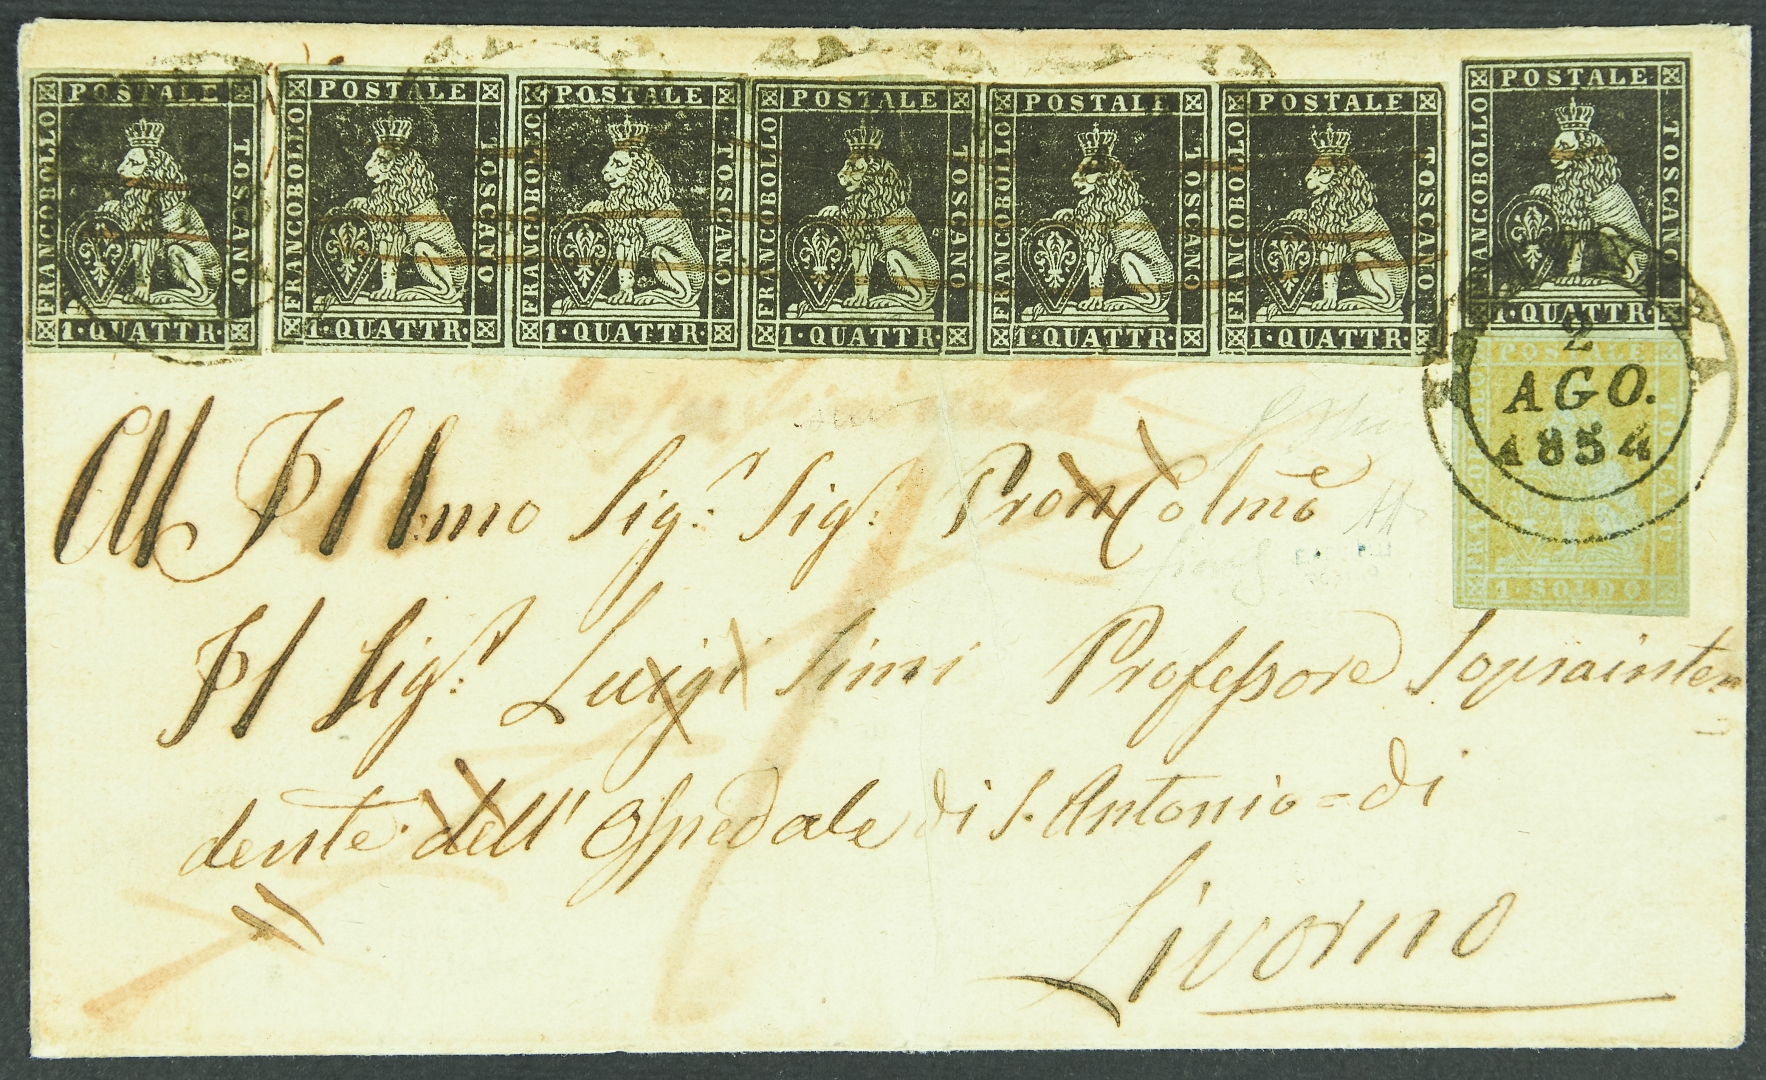 POSTALE FRANCOBOLLO TOSCANO 1·QUATTR·
POSTALE FRANCOBOLLO TOSCANO 1·QUATTR·
POSTALE FRANCOBOLLO TOSCANO 1·QUATTR·
POSTALE FRANCOBOLLO TOSCANO 1·QUATTR·
POSTALE FRANCOBOLLO TOSCANO 1·QUATTR·
POSTALE FRANCOBOLLO TOSCANO 1·QUATTR·
POSTALE FRANCOBOLLO TOSCANO 1·QUATTR·
POSTALE FRANCOBOLLO TOSCANO 1·SOLDO
2
AGO.
1854
All Illmo Sigr. Sigr. Pron Colmo
Il Sigr. Luigi Simi Professore Soprainten
dente dell' Ospedale di S. Antonio = di
Livorno